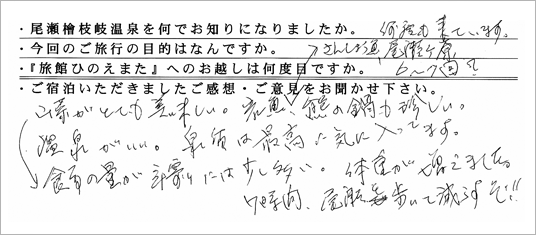 ・尾瀬檜枝岐温泉を何でお知りになりましたか。 何種も来ています。
・今回のご旅行の目的はなんですか。 さんしょう魚 尾瀬ヶ原
・『旅館ひのえまた』へのお越しは何度目ですか。 6〜7回!!
・ご宿泊いただきましたご感想・ご意見をお聞かせ下さい。
山菜がとても美味しい。岩魚、熊の鍋も珍しい。
温泉がいい。泉質は最高に気に入ってます。
食事の量が には少し多い。体重が増えました。
7時間、尾瀬を歩いて減らすぞ!!